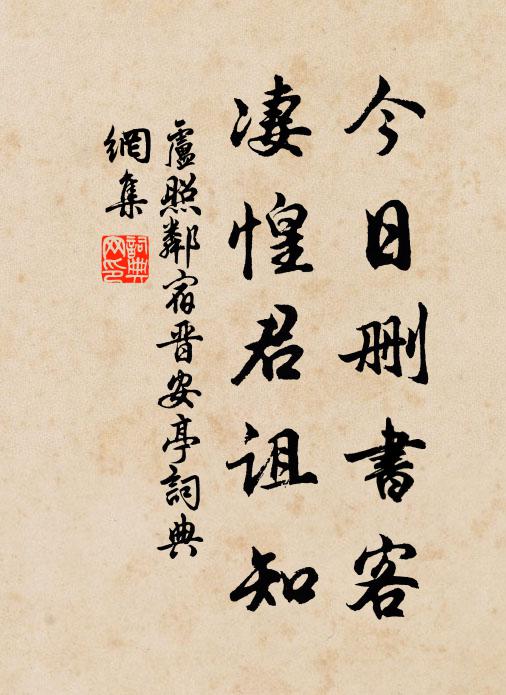 今日删書客
凄惶君詎知
盧照鄰宿晋安亭詞典
網集
詞典
网印